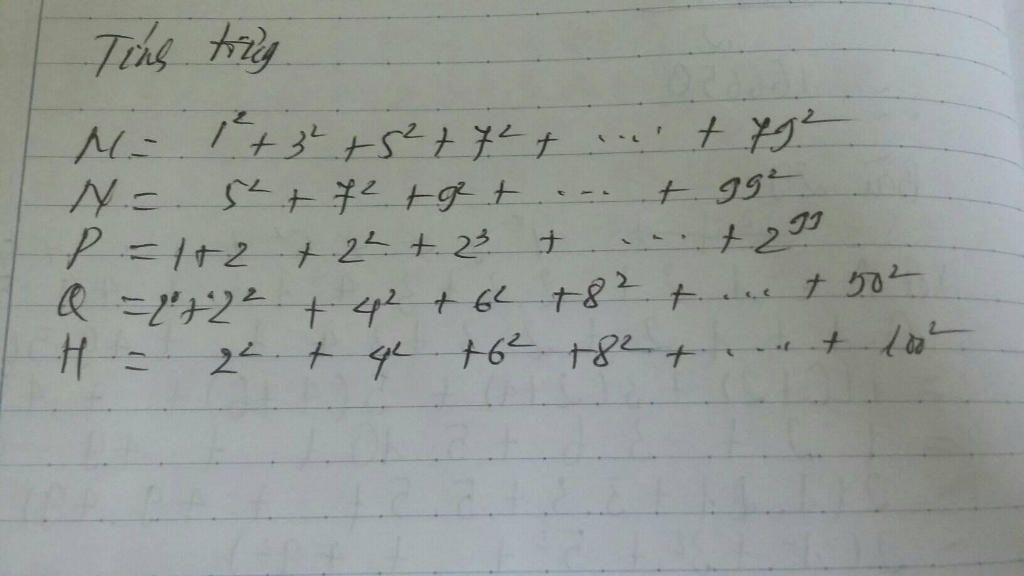 Tính tổng
M = 1² + 3² + 5² + 7² + ... + 79²
N = 5² + 7² + 9² + ... + 99²
P = 1 + 2 + 2² + 2³ + ... + 2⁹⁹
Q = 2² + 4² + 6² + 8² + ... + 50²
H = 2² + 4² + 6² + 8² + ... + 100²